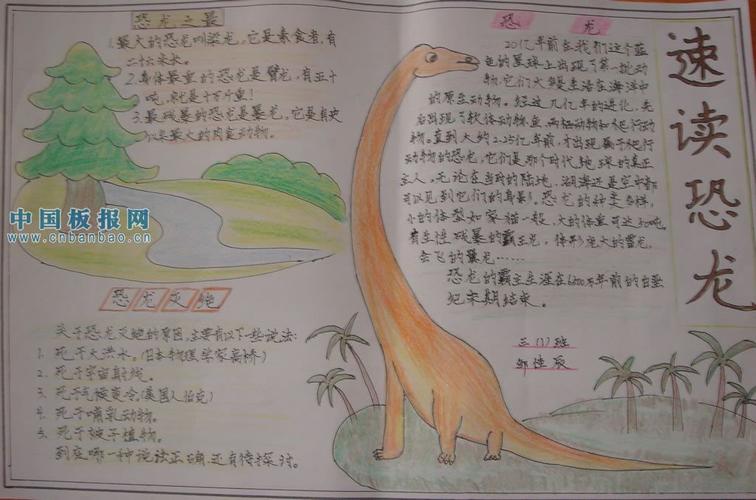 恐龙之最
1.最大的恐龙叫梁龙,它是素食者,有
二十六米长。
2.身体最重的恐龙是臂龙,有五十
吨,就是十万斤重!
3.最残暴的恐龙是暴龙,它是有史
以来最大的肉食动物。
中国板报网
www.cnbanbao.cn
恐龙灭绝
关于恐龙灭绝的原因,主要有以下一些说法:
1. 死于大洪水。(日本物理学家高桥)
2. 死于宇宙射线。
3. 死于气候变冷(美国人伯克)
4. 死于哺乳动物。
5. 死于被子植物。
到底哪一种说法正确,还有待探讨。
恐 龙
20亿年前在我们这个蓝
色的星球上出现了第一批动
物,它们大都生活在海洋中
的原生动物。经过几亿年的进化,先
后出现了软体动物、鱼、两栖动物和爬行动
物。直到大约2.25亿年前,才出现属于爬行
动物的恐龙,它们是那个时代地球的真正
主人,无论在当时的陆地,湖海还是空中都
可以见到它们的身影!恐龙的种类多样,
小的体型如家猫一般,大的体重可达
有生性残暴的霸王龙,体形庞大的雷龙,
会飞的翼龙……
恐龙的霸主生涯在6500万年前的白垩
纪末期结束。
三(1)班
邹佳辰
速读恐龙